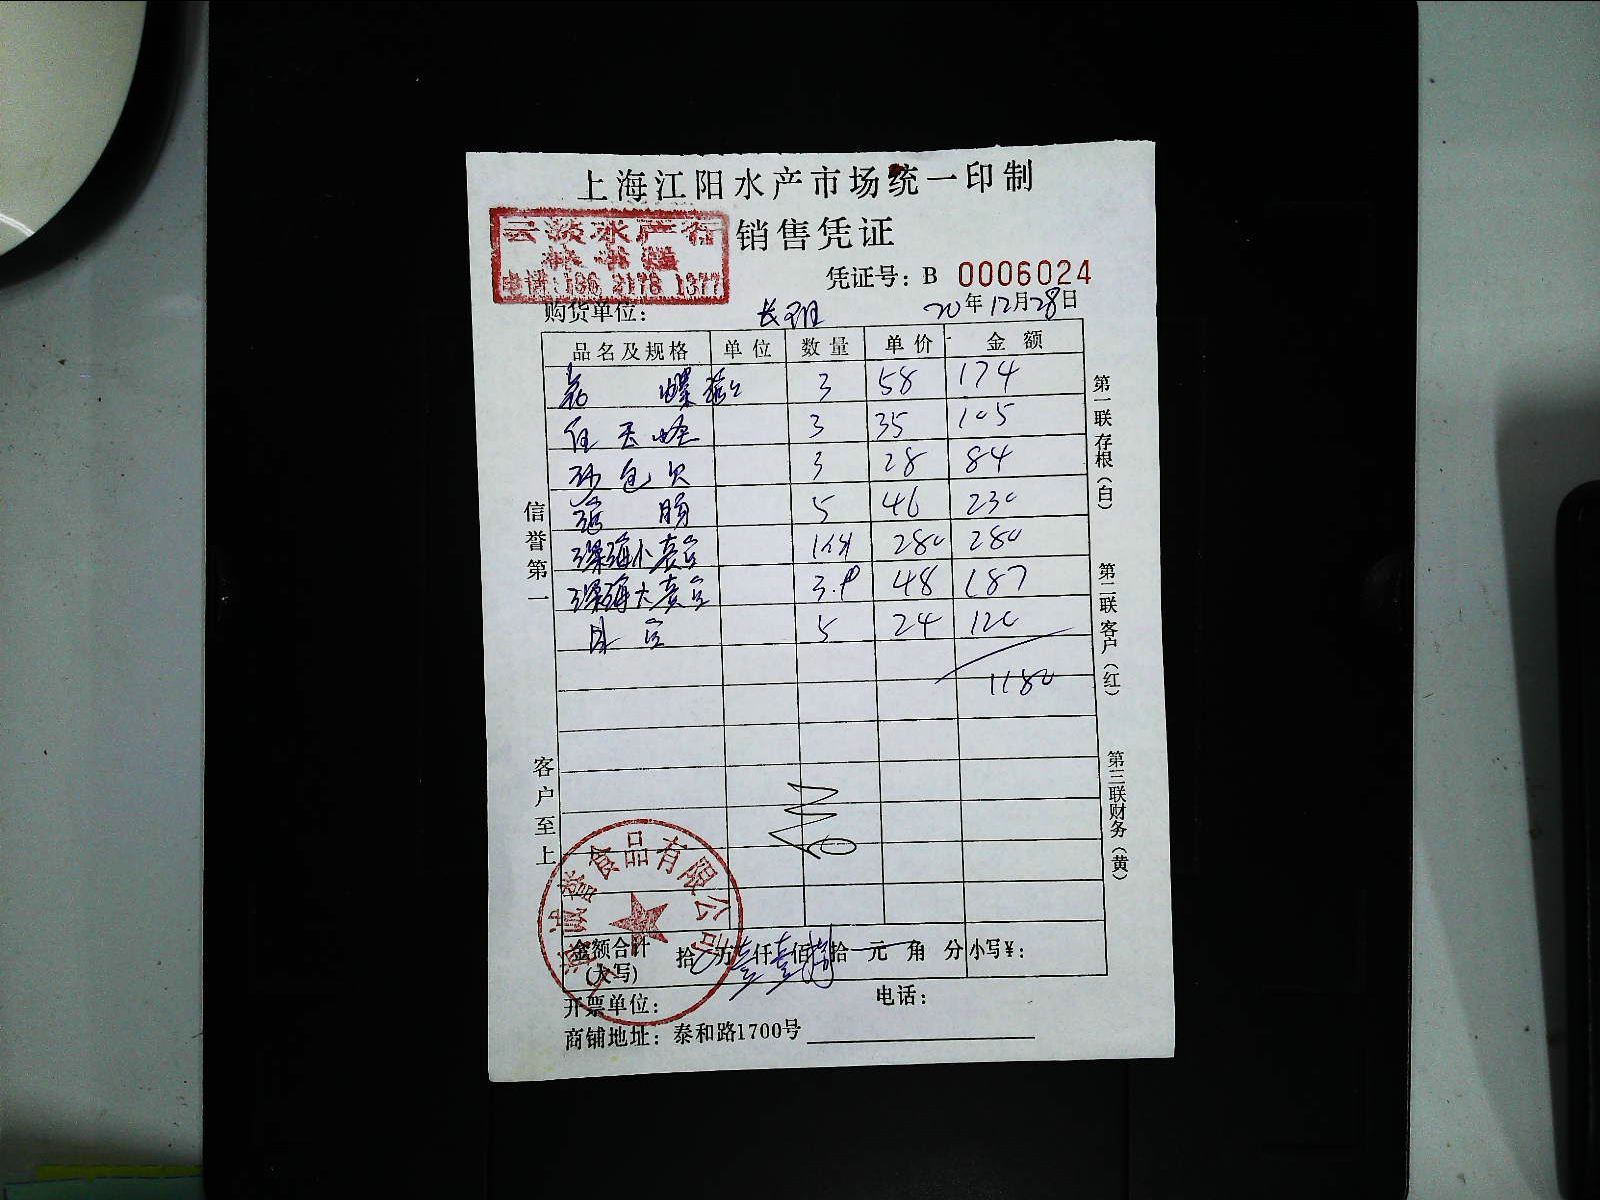 上海江阳水产市场统一印制
云淡水产行
电话:136 2178 1377
销售凭证
凭证号: B 0006024
购货单位:
20年12月28日
品名及规格 单位 数量 单价 金额
花 螺 3 58 174
3 35 105
3 28 84
5 46 230
深海小 280 280
深海大 3.9 48 187
5 24 120
1180
信誉第一
客户至上
第一联存根(白)
第二联客户(红)
第三联财务(黄)
诚誉食品有限公司
金额合计(大写) 拾 万壹仟壹佰捌拾 元 角 分 小写¥:
开票单位: 电话:
商铺地址: 泰和路1700号